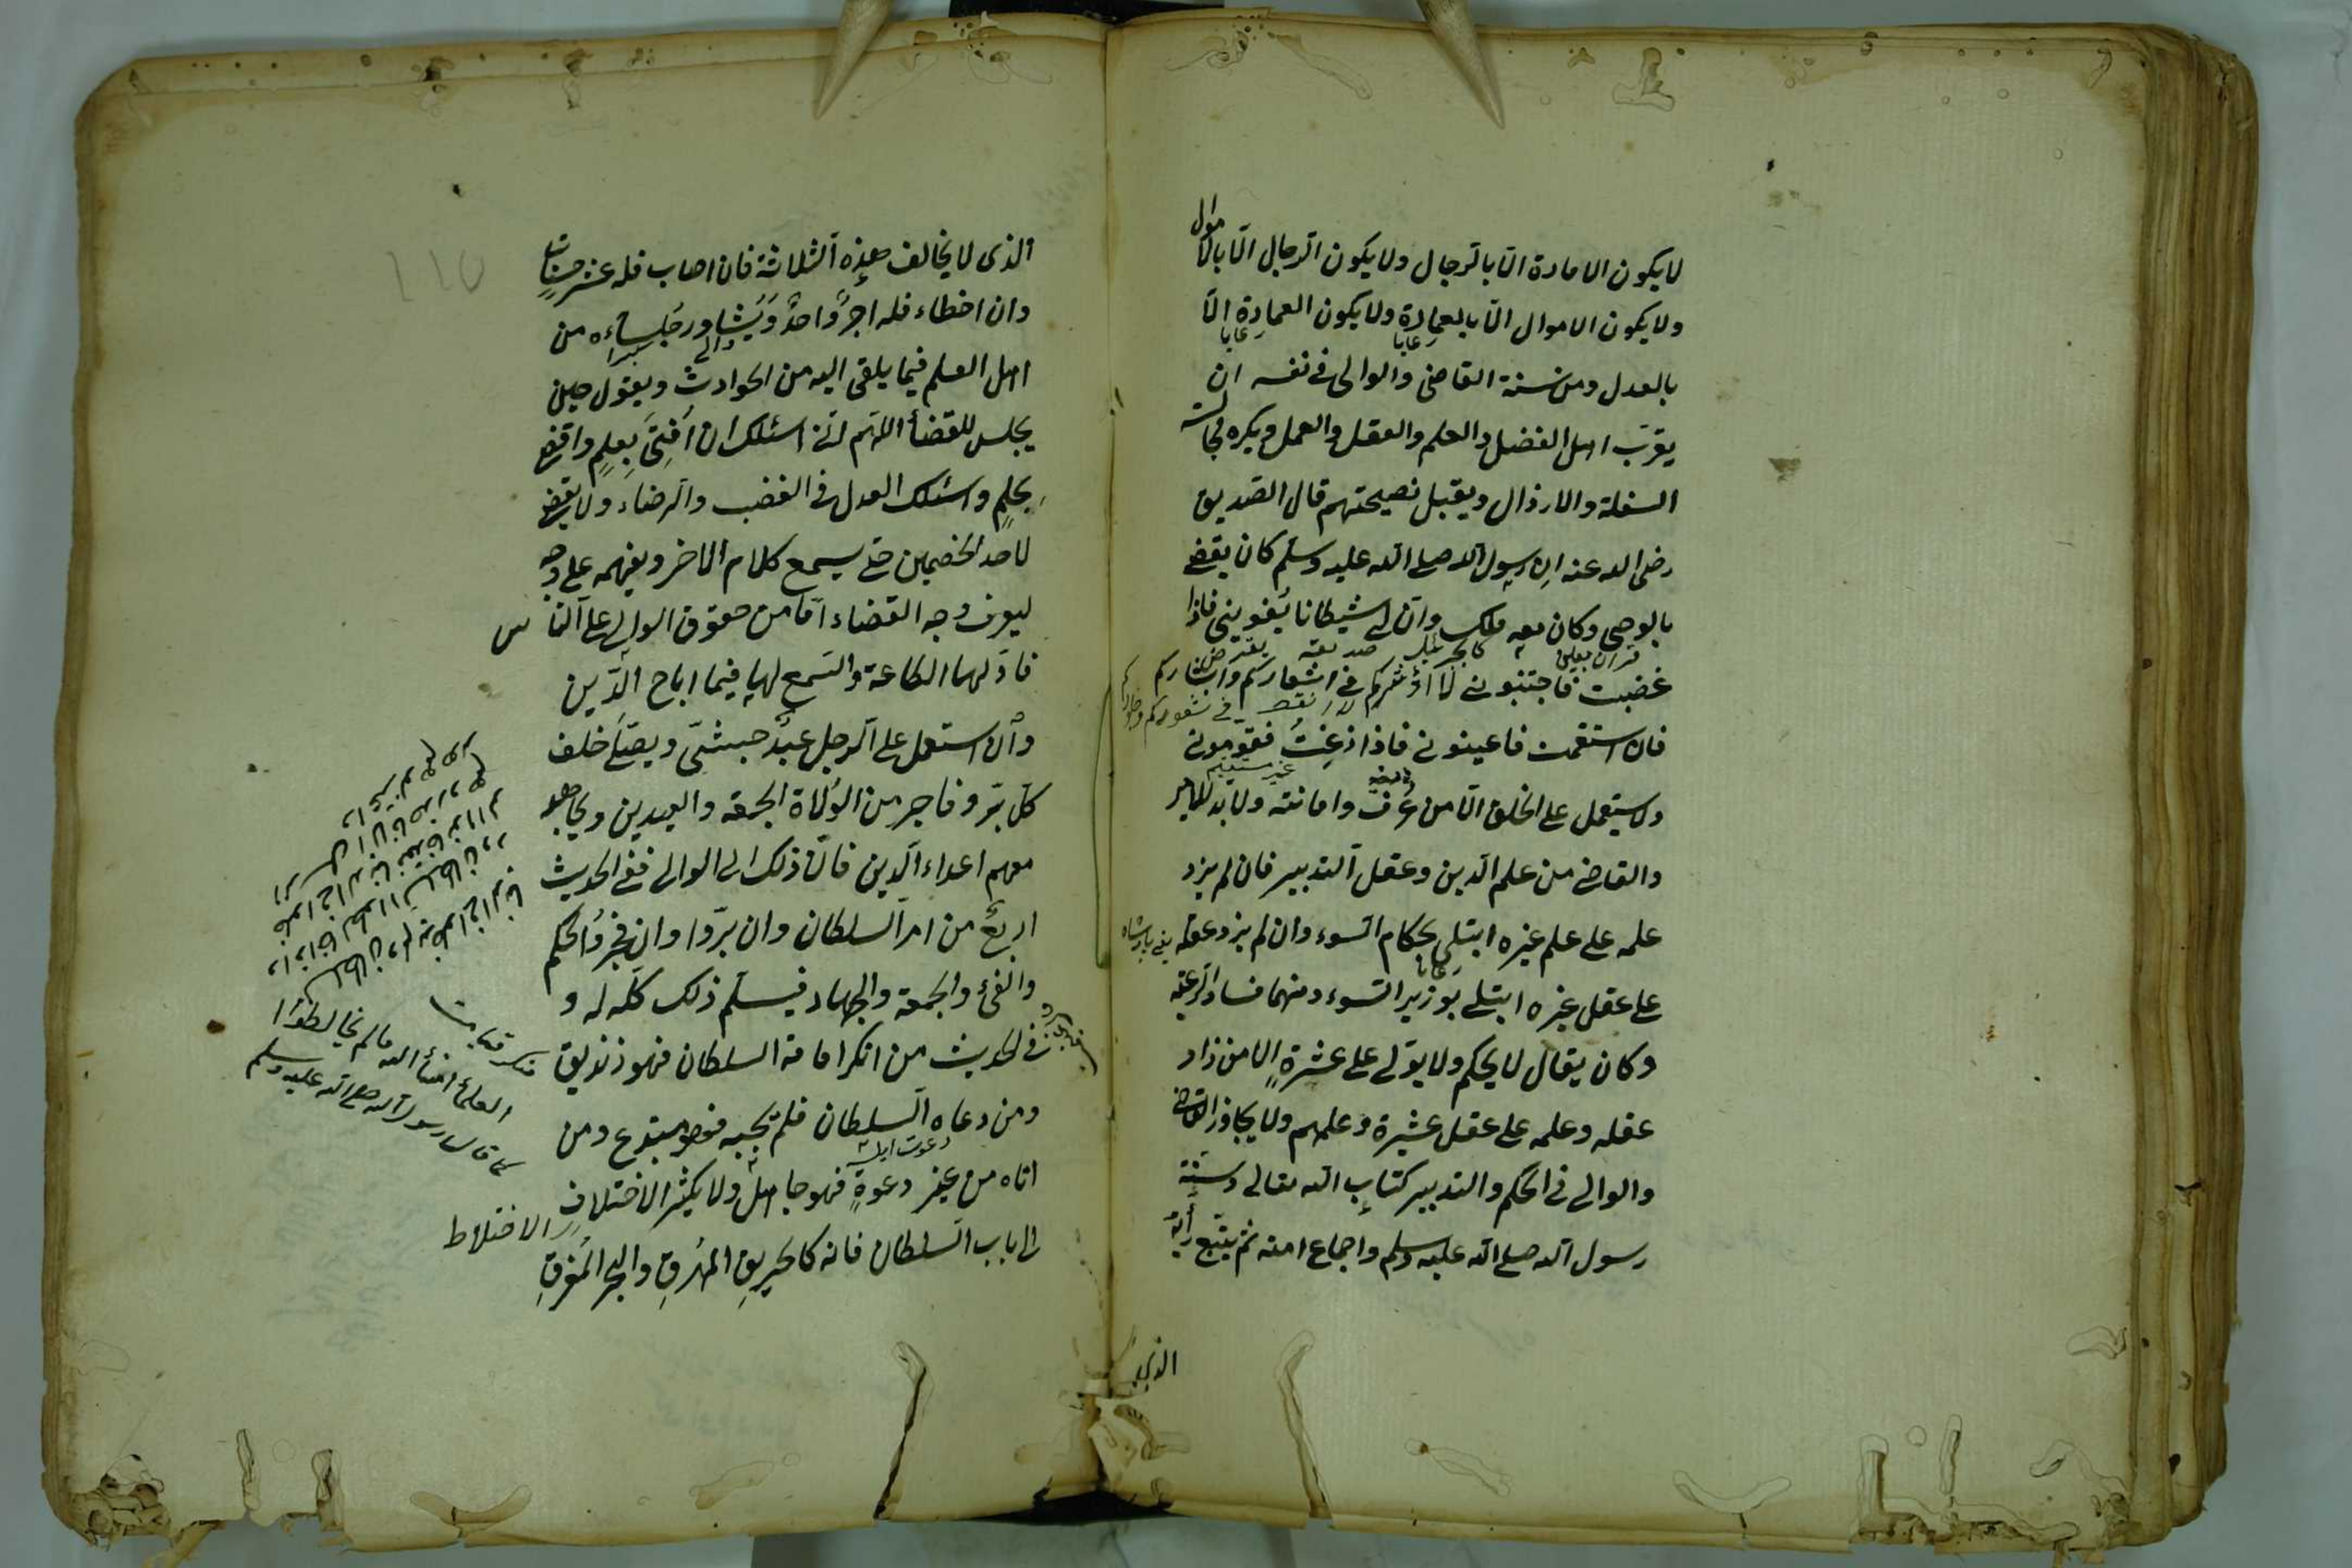 لا يكون الامارة الّا بالرجال ولا يكون الرجال الّا بالاموال
ولا يكون الاموال الّا بالعمارة ولا يكون العمارة الّا
بالعدل ومن سنة القاضى والوالى فى نفسه ان
يقرّب اهل الفضل والعلم والعقل والعمل ويكره مجالسة
السفلة والارذال ويقبل نصيحتهم قال الصّديق
رضى الله عنه ان رسول الله صلى الله عليه وسلّم كان يقضى
بالوحى وكان معه ملك وانّ لى شيطانا يُغوينى فاذا
غضبت فاجتنبونى لا اُؤثركم فى اشعاركم وابشاركم
فان استقمت فاعينونى فاذا زغتُ فقومونى
غير مستقيم
ولا يستعمل على الخلق الّا من عُرف وامانته ولابدّ للامير
والقاضى من علم الدين وعقل التدبير فان لم يزد
علمه على علم غيره ابتلى بحكام السّوء وان لم يزد عقله
على عقل غيره ابتلى بوزير السّوء ومنهما فساد الرّعيّة
وكان يقال لا يحكم ولا يتولى على عشرةٍ الا من زاد
عقله وعلمه على عقل عشرة وعلمهم ولا يجاوز القاضى
والوالى فى الحكم والتدبير كتاب الله تعالى وسنّة
رسول الله صلى الله عليه وسلم واجماع امته ثم يتّبع رأيَه
الذى
الذى لا يخالف هذه الثلاثة فان اصاب فله عشر حسنات
وان اخطاء فله اجرٌ واحدٌ ويُشاور جلساءه من
اهل العلم فيما يلقى اليه من الحوادث ويقول حين
يجلس للقضأ اللهّم انّى اسئلك ان اُفتىَ بعلمٍ واقضى
بحلمٍ واسئلك العدل فى الغضب والرضاء ولا يقضى
لاحد الخصمين حتى يسمع كلام الاخر ويفهمه على وجه
ليعرف وجه القضاء امّا من حقوق الوالى على النّاس
فاوّلها الطاعة والسّمع لها فيما اباح الدّين
وان استعمل على الرجل عبدٌ حبشىّ ويصلّى خلف
كلّ برّ وفاجر من الوُلاة الجمعة والعيدين ويجاهد
معهم اعداء الدين فانّ ذلك الى الوالى ففى الحديث
اربعٌ من امر السلطان وان برّوا وان فجرُوا الحكم
والفئ والجمعة والجهاد فيسلّم ذلك كلّه له و
فى الحديث من انكر امامة السلطان فهو زنديق
ومن دعاه السلطان فلم يُجبه فهو مبتدع ومن
اتاه من غير دعوةٍ فهو جاهلٌ ولا يكثر الاختلاف
الاختلاط
الى باب السّلطان فانه كالحريق المُحرقِ والبحر المُغرقِ
العلمأ امنأ الله مالم يخالطوا
كما قال رسول الله صلى الله عليه وسلم